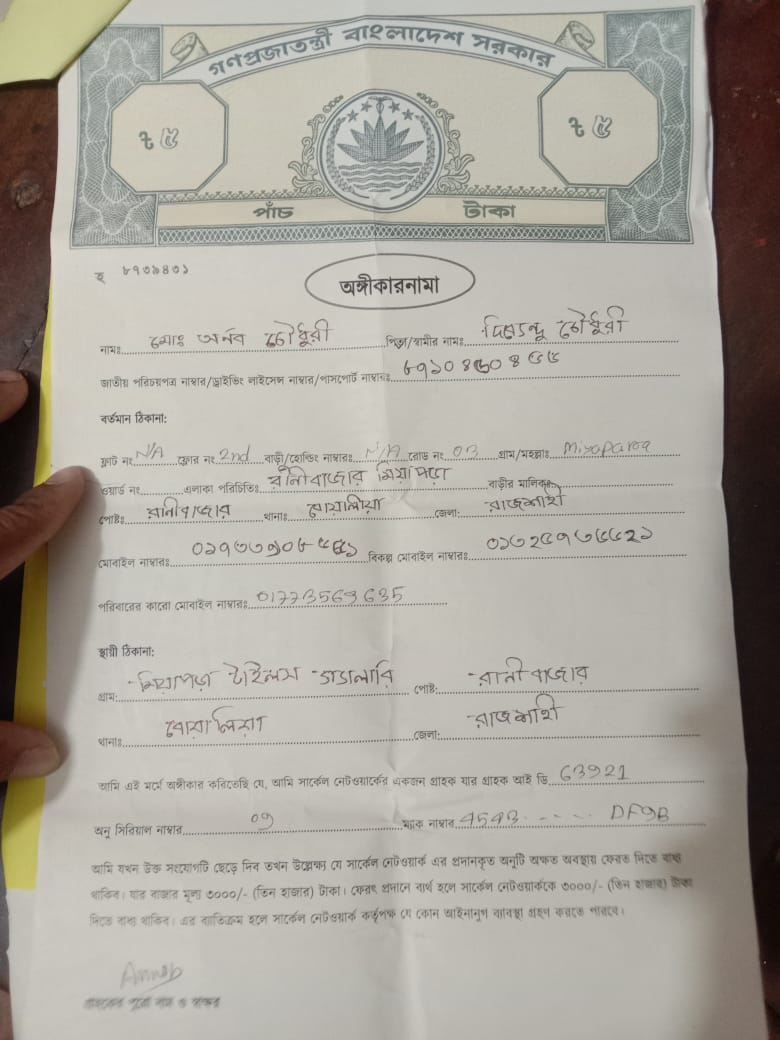 গণপ্রজাতন্ত্রী বাংলাদেশ সরকার
৳ ৫ ৳ ৫
পাঁচ টাকা
হ ৮৭৩৯৪৩১
অঙ্গীকারনামা
নামঃ মোঃ অর্নব চৌধুরী পিতা/স্বামীর নামঃ চৌধুরী
জাতীয় পরিচয়পত্র নাম্বার/ড্রাইভিং লাইসেন্স নাম্বার/পাসপোর্ট নাম্বারঃ
বর্তমান ঠিকানা:
ফ্লাট নং N/A ফ্লোর নং 2nd বাড়ী/হোল্ডিং নাম্বারঃ N/A রোড নং 03 গ্রাম/মহল্লাঃ Miyapara
ওয়ার্ড নং এলাকা পরিচিতিঃ রানীবাজার মিয়াপাড়া বাড়ীর মালিকঃ
পোষ্টঃ রানীবাজার থানাঃ বোয়ালীয়া জেলা: রাজশাহী
মোবাইল নাম্বারঃ বিকল্প মোবাইল নাম্বারঃ
পরিবারের কারো মোবাইল নাম্বারঃ 01773569635
স্থায়ী ঠিকানা:
গ্রাম: মিয়াপাড়া টাইলস পোষ্ট: রানীবাজার
থানাঃ বোয়ালিয়া জেলা: রাজশাহী
আমি এই মর্মে অঙ্গীকার করিতেছি যে, আমি সার্কেল নেটওয়ার্কের একজন গ্রাহক যার গ্রাহক আই ডি 63921
অনু সিরিয়াল নাম্বার 09 ম্যাক নাম্বার 4543 - - - - - DF9B
আমি যখন উক্ত সংযোগটি ছেড়ে দিব তখন উল্লেক্ষ্য যে সার্কেল নেটওয়ার্ক এর প্রদানকৃত অনুটি অক্ষত অবস্থায় ফেরত দিতে বাধ্য
থাকিব। যার বাজার মূল্য ৩০০০/- (তিন হাজার) টাকা। ফেরৎ প্রদানে ব্যর্থ হলে সার্কেল নেটওয়ার্ককে ৩০০০/- (তিন হাজার) টাকা
দিতে বাধ্য থাকিব। এর ব্যতিক্রম হলে সার্কেল নেটওয়ার্ক কর্তৃপক্ষ যে কোন আইনানুগ ব্যবস্থা গ্রহণ করতে পারবে।
Arnab
গ্রাহকের পুরো নাম ও স্বাক্ষর